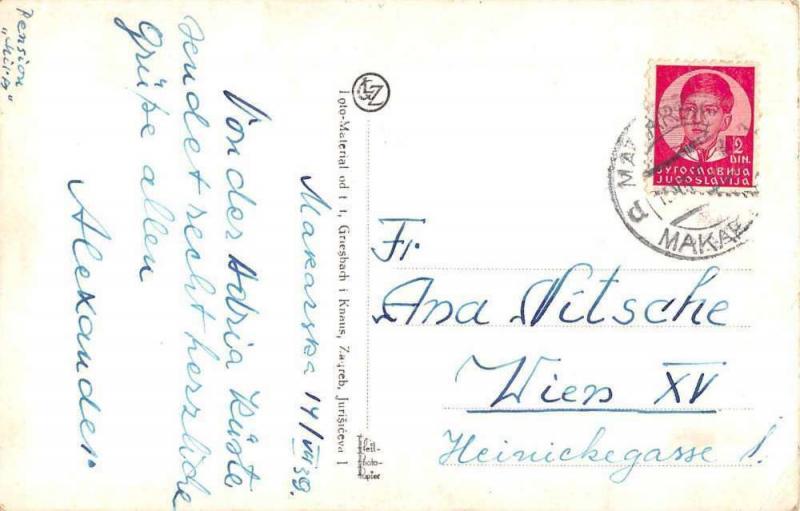 Makarska 14/VII 39.
Von der Adria Küste
sendet recht herzliche
Grüße allen
Alexander
Pension
"Mira"
Foto-Material od t t. Griesbach i Knaus, Zagreb, Jurišićeva 1
2
DIN.
ЈУГОСЛАВИЈА
JUGOSLAVIJA
MAKAR
Fr.
Ana Nitsche
Wien XV
Heinickegasse 1.